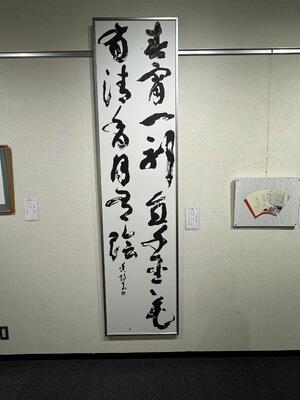 春宵一刻直千金花
有清香月有陰